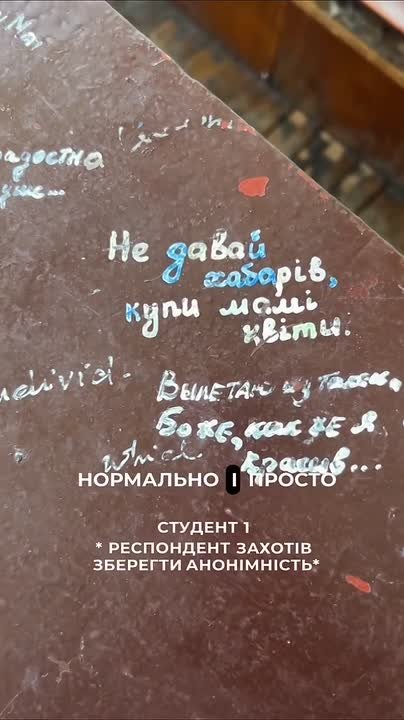 Не давай
хабарів,
купи мамі
квіти.
individ-
Вылетаю из танка,
Боже, как же я
which
красив...
НОРМАЛЬНО І ПРОСТО
СТУДЕНТ 1
* РЕСПОНДЕНТ ЗАХОТІВ
ЗБЕРЕГТИ АНОНІМНІСТЬ*